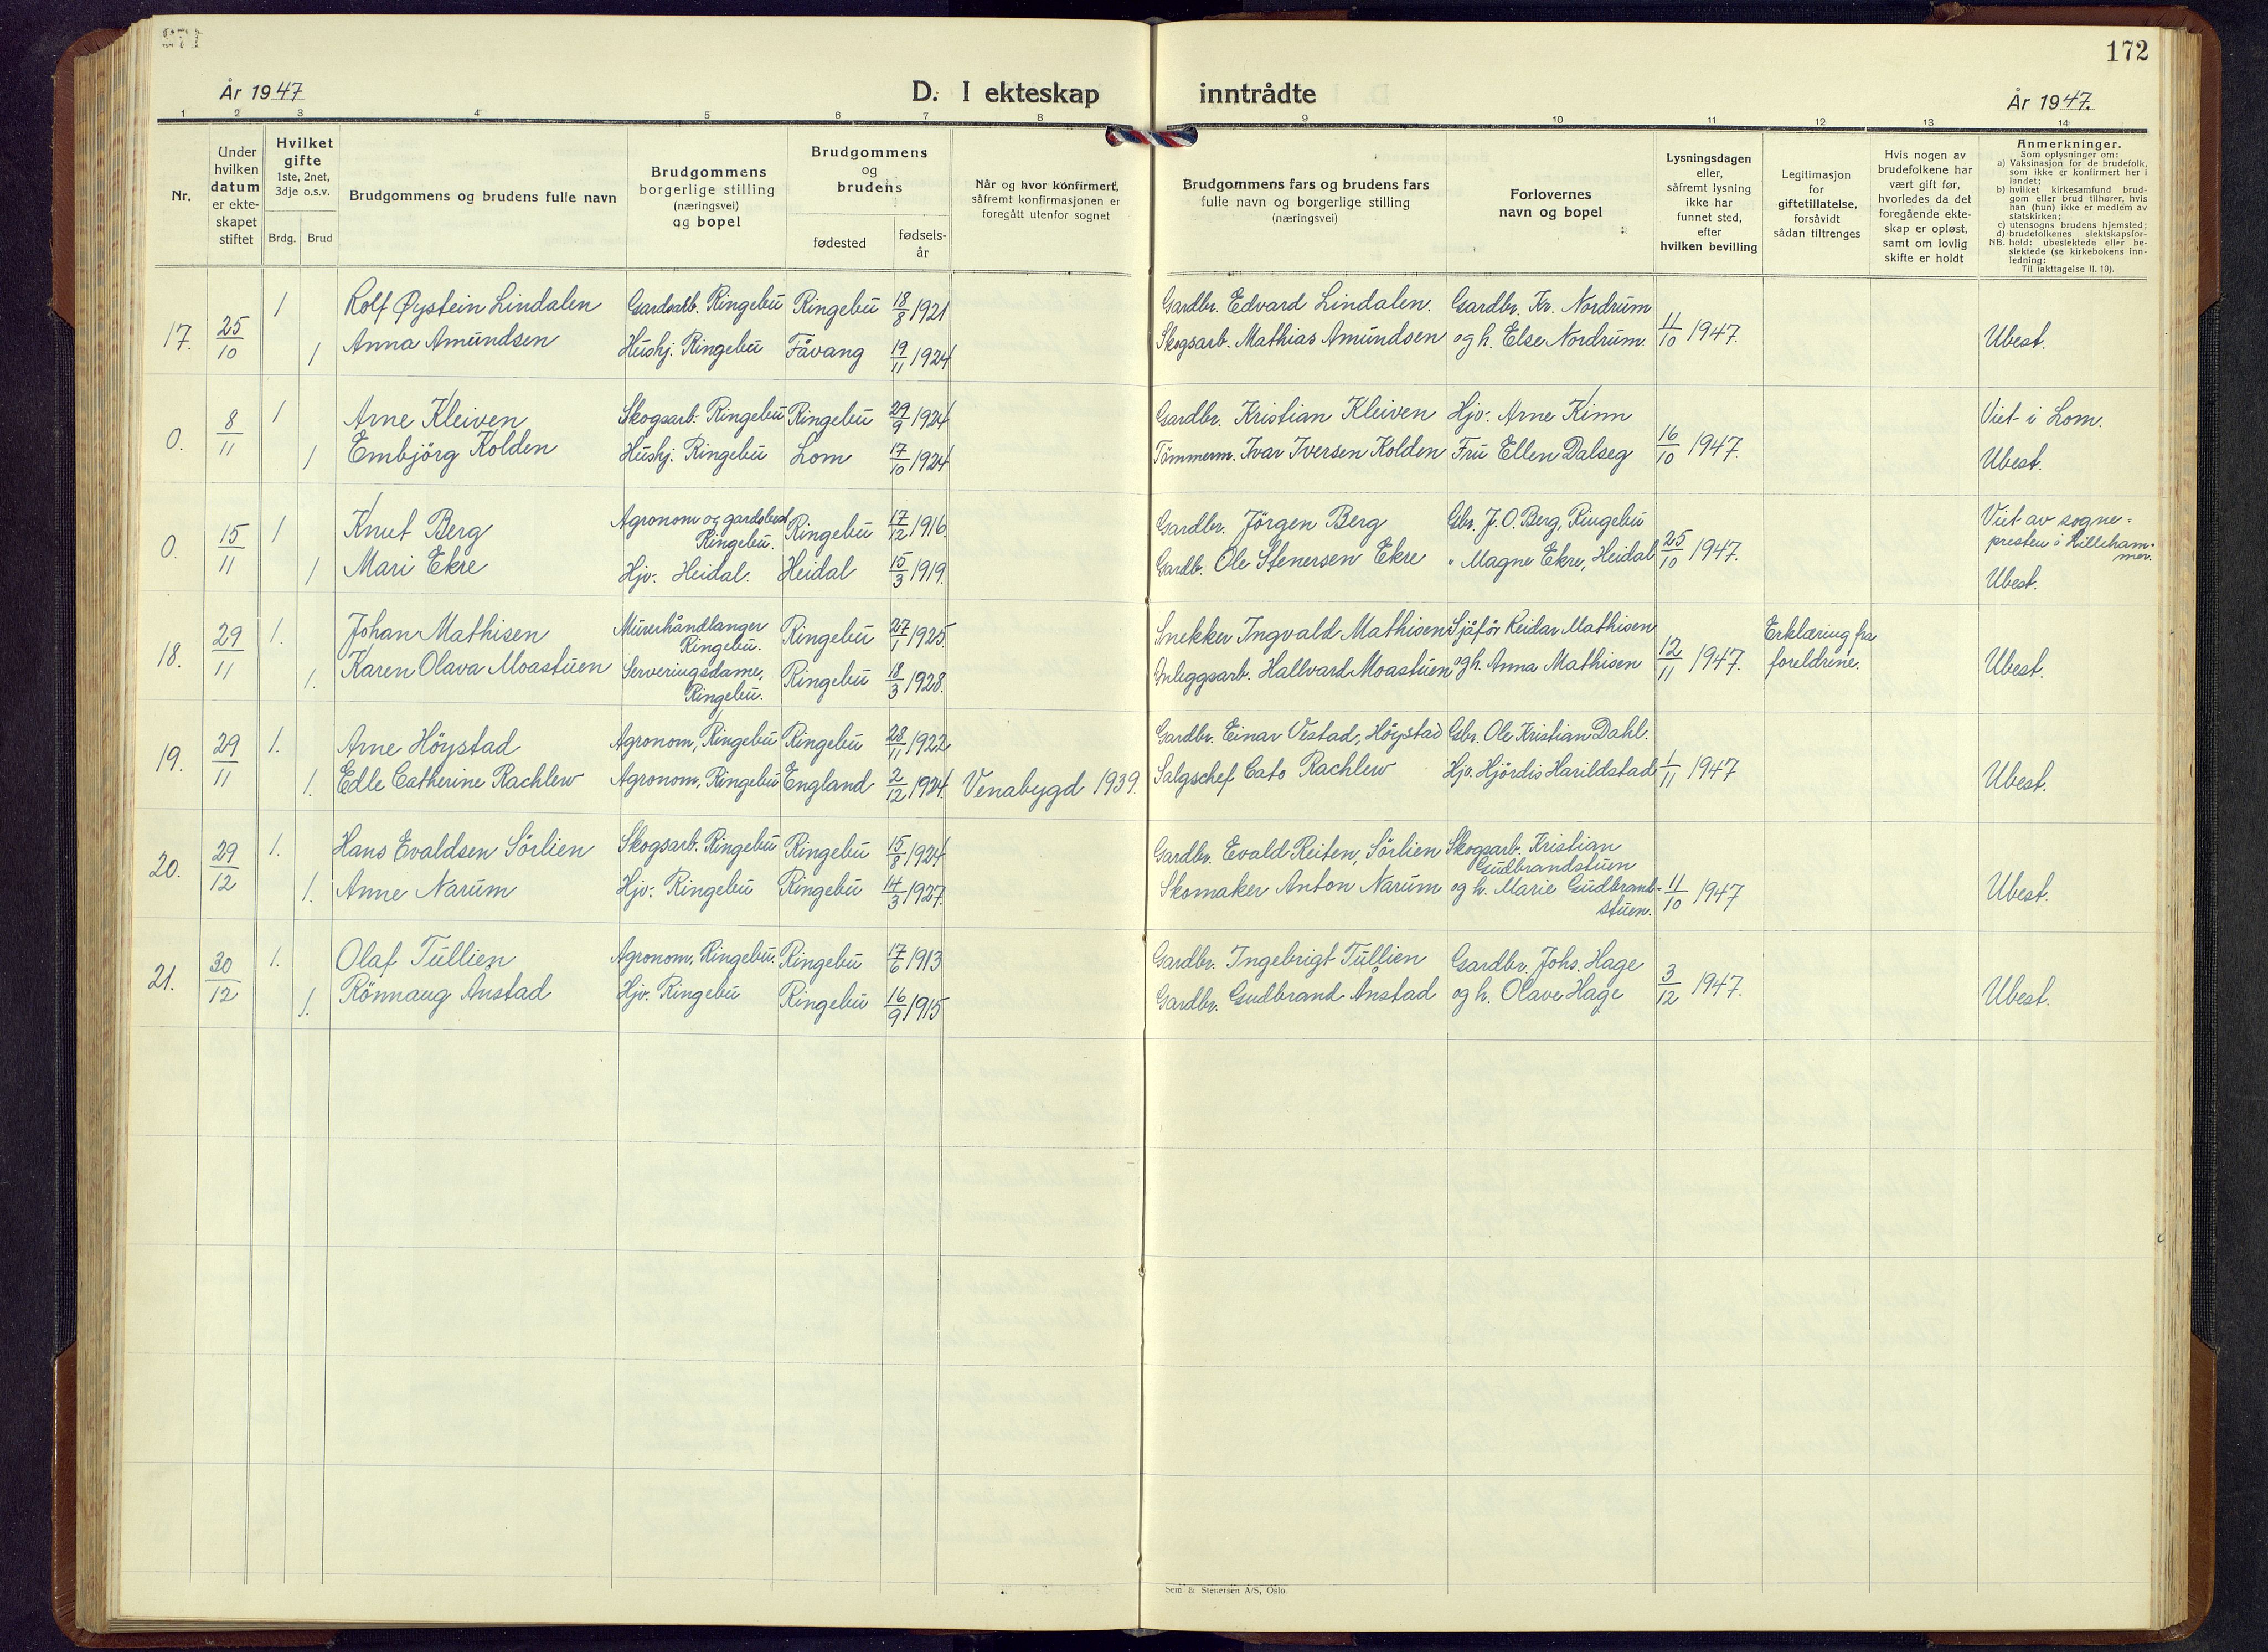 172
År 1947
D. I ekteskap inntrådte
År 1947.
1 2 3 4 5 6 7 8 9 10 11 12 13 14
Nr.
Under
hvilken
datum
er ekte-
skapet
stiftet
Hvilket
gifte
1ste, 2net,
3dje o.s.v.
Brdg. Brud
Brudgommens og brudens fulle navn
Brudgommens
borgerlige stilling
(næringsvei)
og bopel
Brudgommens
og
brudens
fødested
fødsels-
år
Når og hvor konfirmert,
såfremt konfirmasjonen er
foregått utenfor sognet
Brudgommens fars og brudens fars
fulle navn og borgerlige stilling
(næringsvei)
Forlovernes
navn og bopel
Lysningsdagen
eller,
såfremt lysning
ikke har
funnet sted,
efter
hvilken bevilling
Legitimasjon
for
giftetillatelse,
forsåvidt
sådan tiltrenges
Hvis nogen av
brudefolkene har
vært gift før,
hvorledes da det
foregående ekte-
skap er opløst,
samt om lovlig
skifte er holdt
Anmerkninger.
Som oplysninger om:
a) Vaksinasjon for de brudefolk,
som ikke er konfirmert her i
landet;
b) hvilket kirkesamfund brud-
gom eller brud tilhører, hvis
han (hun) ikke er medlem av
statskirken;
c) utensogns brudens hjemsted;
d) brudefolkenes slektskapsfor-
NB. hold: ubeslektede eller be-
slektede (se kirkebokens inn-
ledning:
Til iakttagelse II. 10).
17. 25/10 1 Rolf Øystein Lindalen Gardsarb. Ringebu Ringebu 18/8 1921 Gardbr. Edvard Lindalen. Gardbr. Kr. Nordrum
1 Anna Amundsen Hushj. Ringebu Fåvang 19/11 1924 Skogsarb. Mathias Amundsen og h. Else Nordrum. 11/10 1947. Ubest.
0. 8/11 1 Arne Kleiven Skogsarb. Ringebu Ringebu 29/9 1924 Gardbr. Kristian Kleiven Hjv. Arne Kinn Viet i Lom.
1 Embjörg Kolden Hushj. Ringebu Lom 17/10 1924 Tömmerm. Ivar Iversen Kolden Fru Ellen Dalseg 16/10 1947. Ubest.
0. 15/11 1 Knut Berg Agronom og gardsbest. Ringebu 17/12 1916. Gardbr. Jörgen Berg Gbr. J. O. Berg, Ringebu Viet av sogne-
Ringebu. presten i Lilleham-
mer.
1 Mari Ekre Hjv. Heidal. Heidal 15/3 1919. Gardb. Ole Stenersen Ekre " Magne Ekre, Heidal 25/10 1947.
Ubest.
18. 29/11 1. Johan Mathisen Murerhåndlanger Ringebu 27/1 1925. Snekker Ingvald Mathisen Sjåför Reidar Mathisen Erklæring fra
Ringebu.
1. Karen Olava Moastuen Serveringsdame, Ringebu 18/3 1928. Anleggsarb. Hallvard Moastuen og h. Anna Mathisen 12/11 1947. foreldrene. Ubest.
Ringebu.
19. 29/11 1. Arne Höystad Agronom, Ringebu Ringebu 28/11 1922 Gardbr. Einar Vestad, Höystad Gbr. Ole Kristian Dahl.
1. Edle Catherine Rachlew Agronom, Ringebu England 2/12 1924. Venabygd 1939. Salgschef Cato Rachlew Hjv. Hjördis Harildstad 1/11 1947 Ubest.
20. 29/12 1. Hans Evaldsen Sörlien Skogsarb. Ringebu Ringebu 15/8 1924 Gardbr. Evald Reiten, Sörlien Skogsarb. Kristian
Gudbrandstuen
1. Anne Narum Hjv. Ringebu Ringebu 14/3 1927. Skomaker Anton Narum og h. Marie Gudbrand- 11/10 1947 Ubest.
stuen.
21. 30/12 1. Olaf Tullien Agronom, Ringebu. Ringebu 17/6 1913 Gardbr. Ingebrigt Tullien Gardbr. Johs. Hage
1. Rönnaug Anstad Hjv. Ringebu Ringebu 16/9 1915 Gardbr. Gudbrand Ånstad og h. Olave Hage 3/12 1947. Ubest.
Sem & Stenersen A/S, Oslo